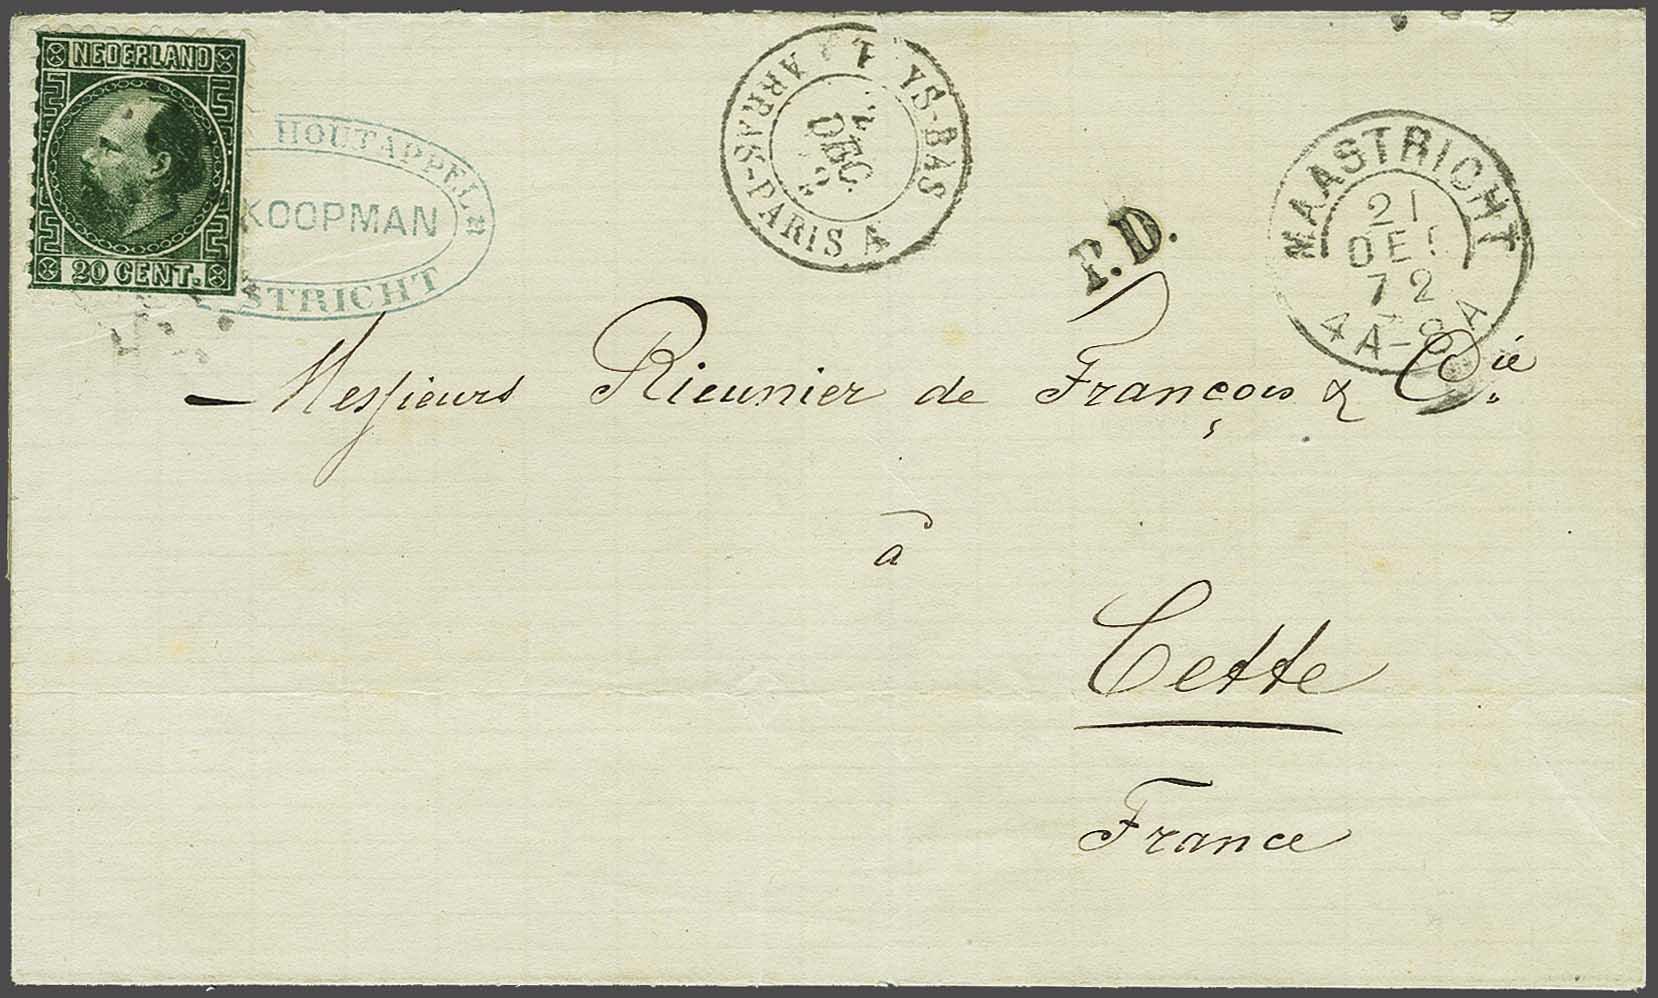 NEDERLAND
20 CENT.
HOUTAPPEL
KOOPMAN
STRICHT
YS-BAS
ARRAS-PARIS A
DEC.
P.D.
MAASTRICHT
21
DE
72
4A-8A
Messieurs Rieunier de François & Cie
à
Cette
France